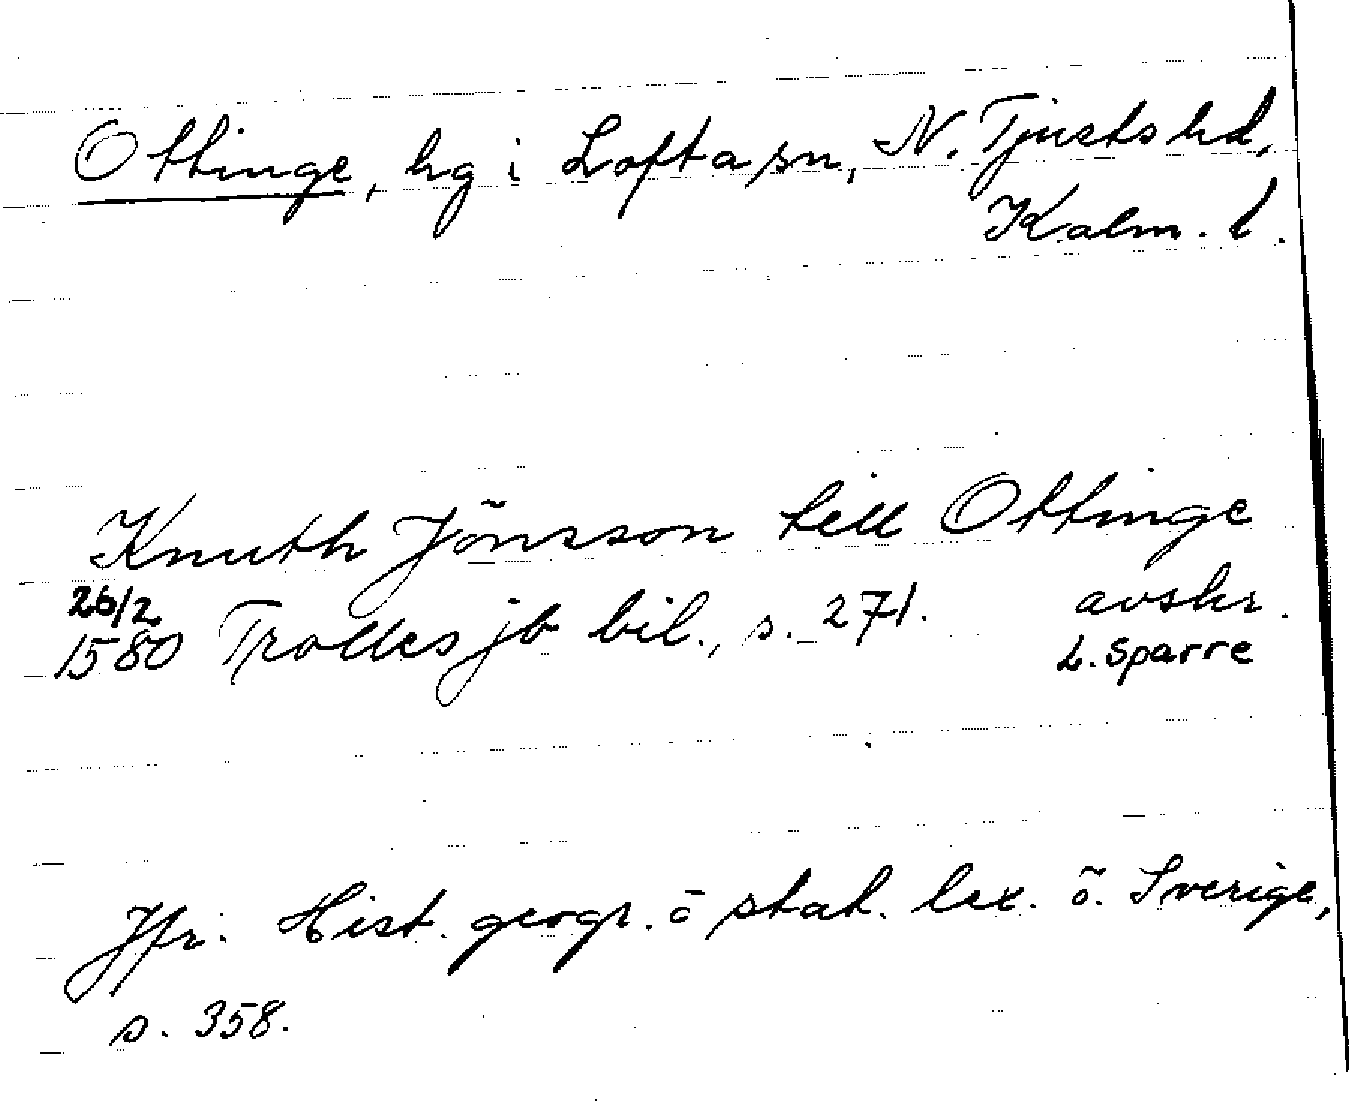 Ottinge, hg i Lofta sn, N. Tjusts hd,
Kalm. l.
Knuth Jönsson till Ottinge
26/2
1580 Trolles jb bil., s. 271. avskr.
L. Sparre
Jfr: Hist. geogr. o stat. lex. ö. Sverige,
s. 358.